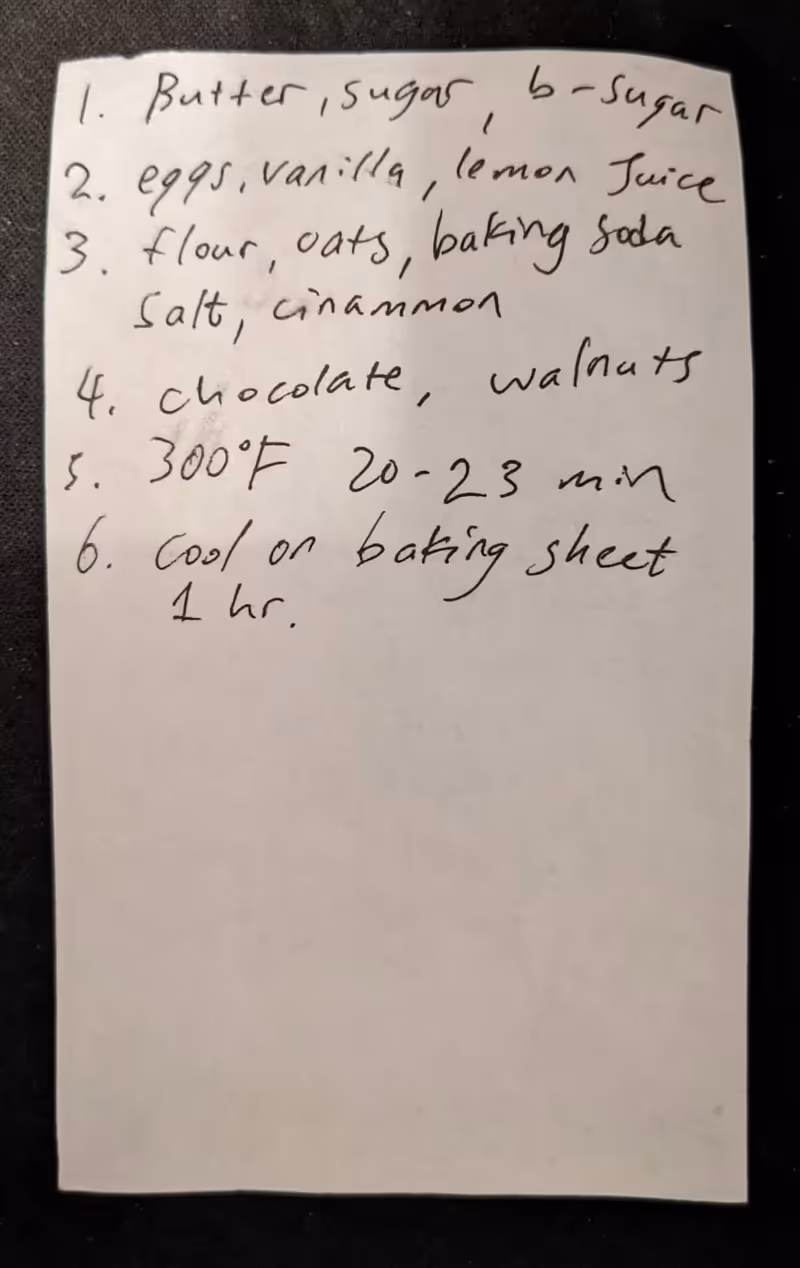 1. Butter, sugar, b-sugar
2. eggs, vanilla, lemon Juice
3. flour, oats, baking soda
salt, cinammon
4. chocolate, walnuts
5. 300°F 20-23 min
6. cool on baking sheet
1 hr.